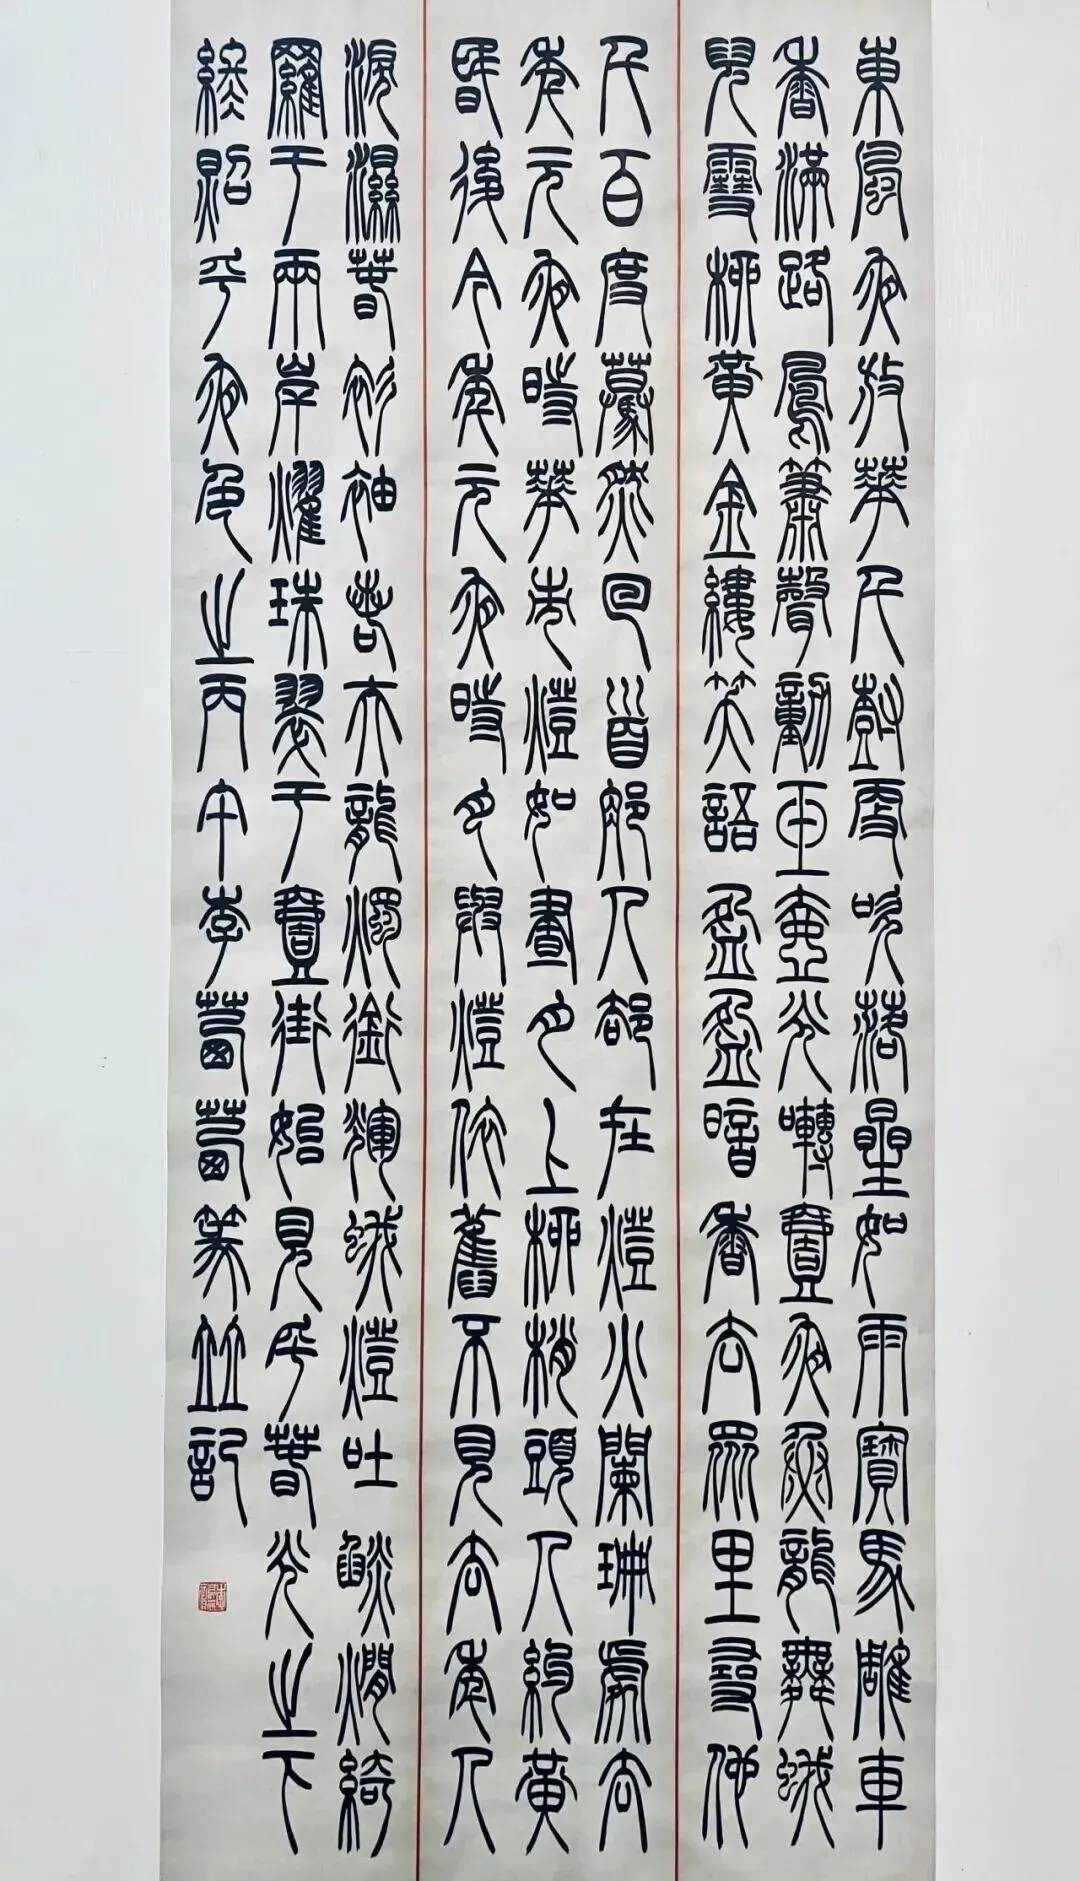 東風夜放華千樹更吹落星如雨寶馬雕車
香滿路鳳簫聲動玉壺光轉壹夜魚龍舞蛾
兒雪柳黃金縷笑語盈盈暗香去眾里尋他
千百度驀然回首那人卻在燈火闌珊處去
年元夜時華市燈如晝月上柳梢頭人約黃
昏後今年元夜時月與燈依舊不見去年人
淚濕春衫袖若夫龍燭銜輝蛾燈吐燄爛綺
羅于兩岸耀珠翠于壹街始見乎春光之下
終照乎夜色之丙午李篆並記